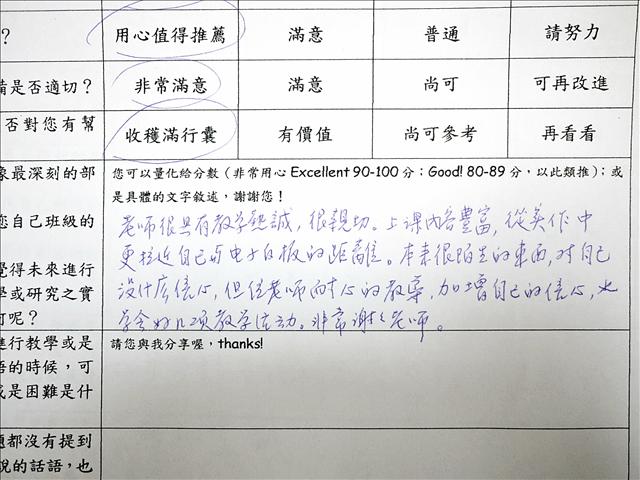 ？ 用心值得推薦 滿意 普通 請努力
備是否適切？ 非常滿意 滿意 尚可 可再改進
否對您有幫 收穫滿行囊 有價值 尚可參考 再看看
象最深刻的部
您自己班級的
覺得未來進行
學或研究之實
何呢？
您可以量化給分數（非常用心 Excellent 90-100 分；Good! 80-89 分，以此類推）；或
是具體的文字敘述，謝謝您！
老师很具有教学熱誠，很親切。上課內容豐富，從美作中
更接近自己与电子白板的距離。本来很陌生的東西，对自己
沒什広信心，但經老师耐心的教導，加增自己的信心，也
学会好几項教学活动。非常谢谢老师。
進行教學或是
語的時候，可
或是困難是什
請您與我分享喔，thanks!
題都沒有提到
說的話語，也